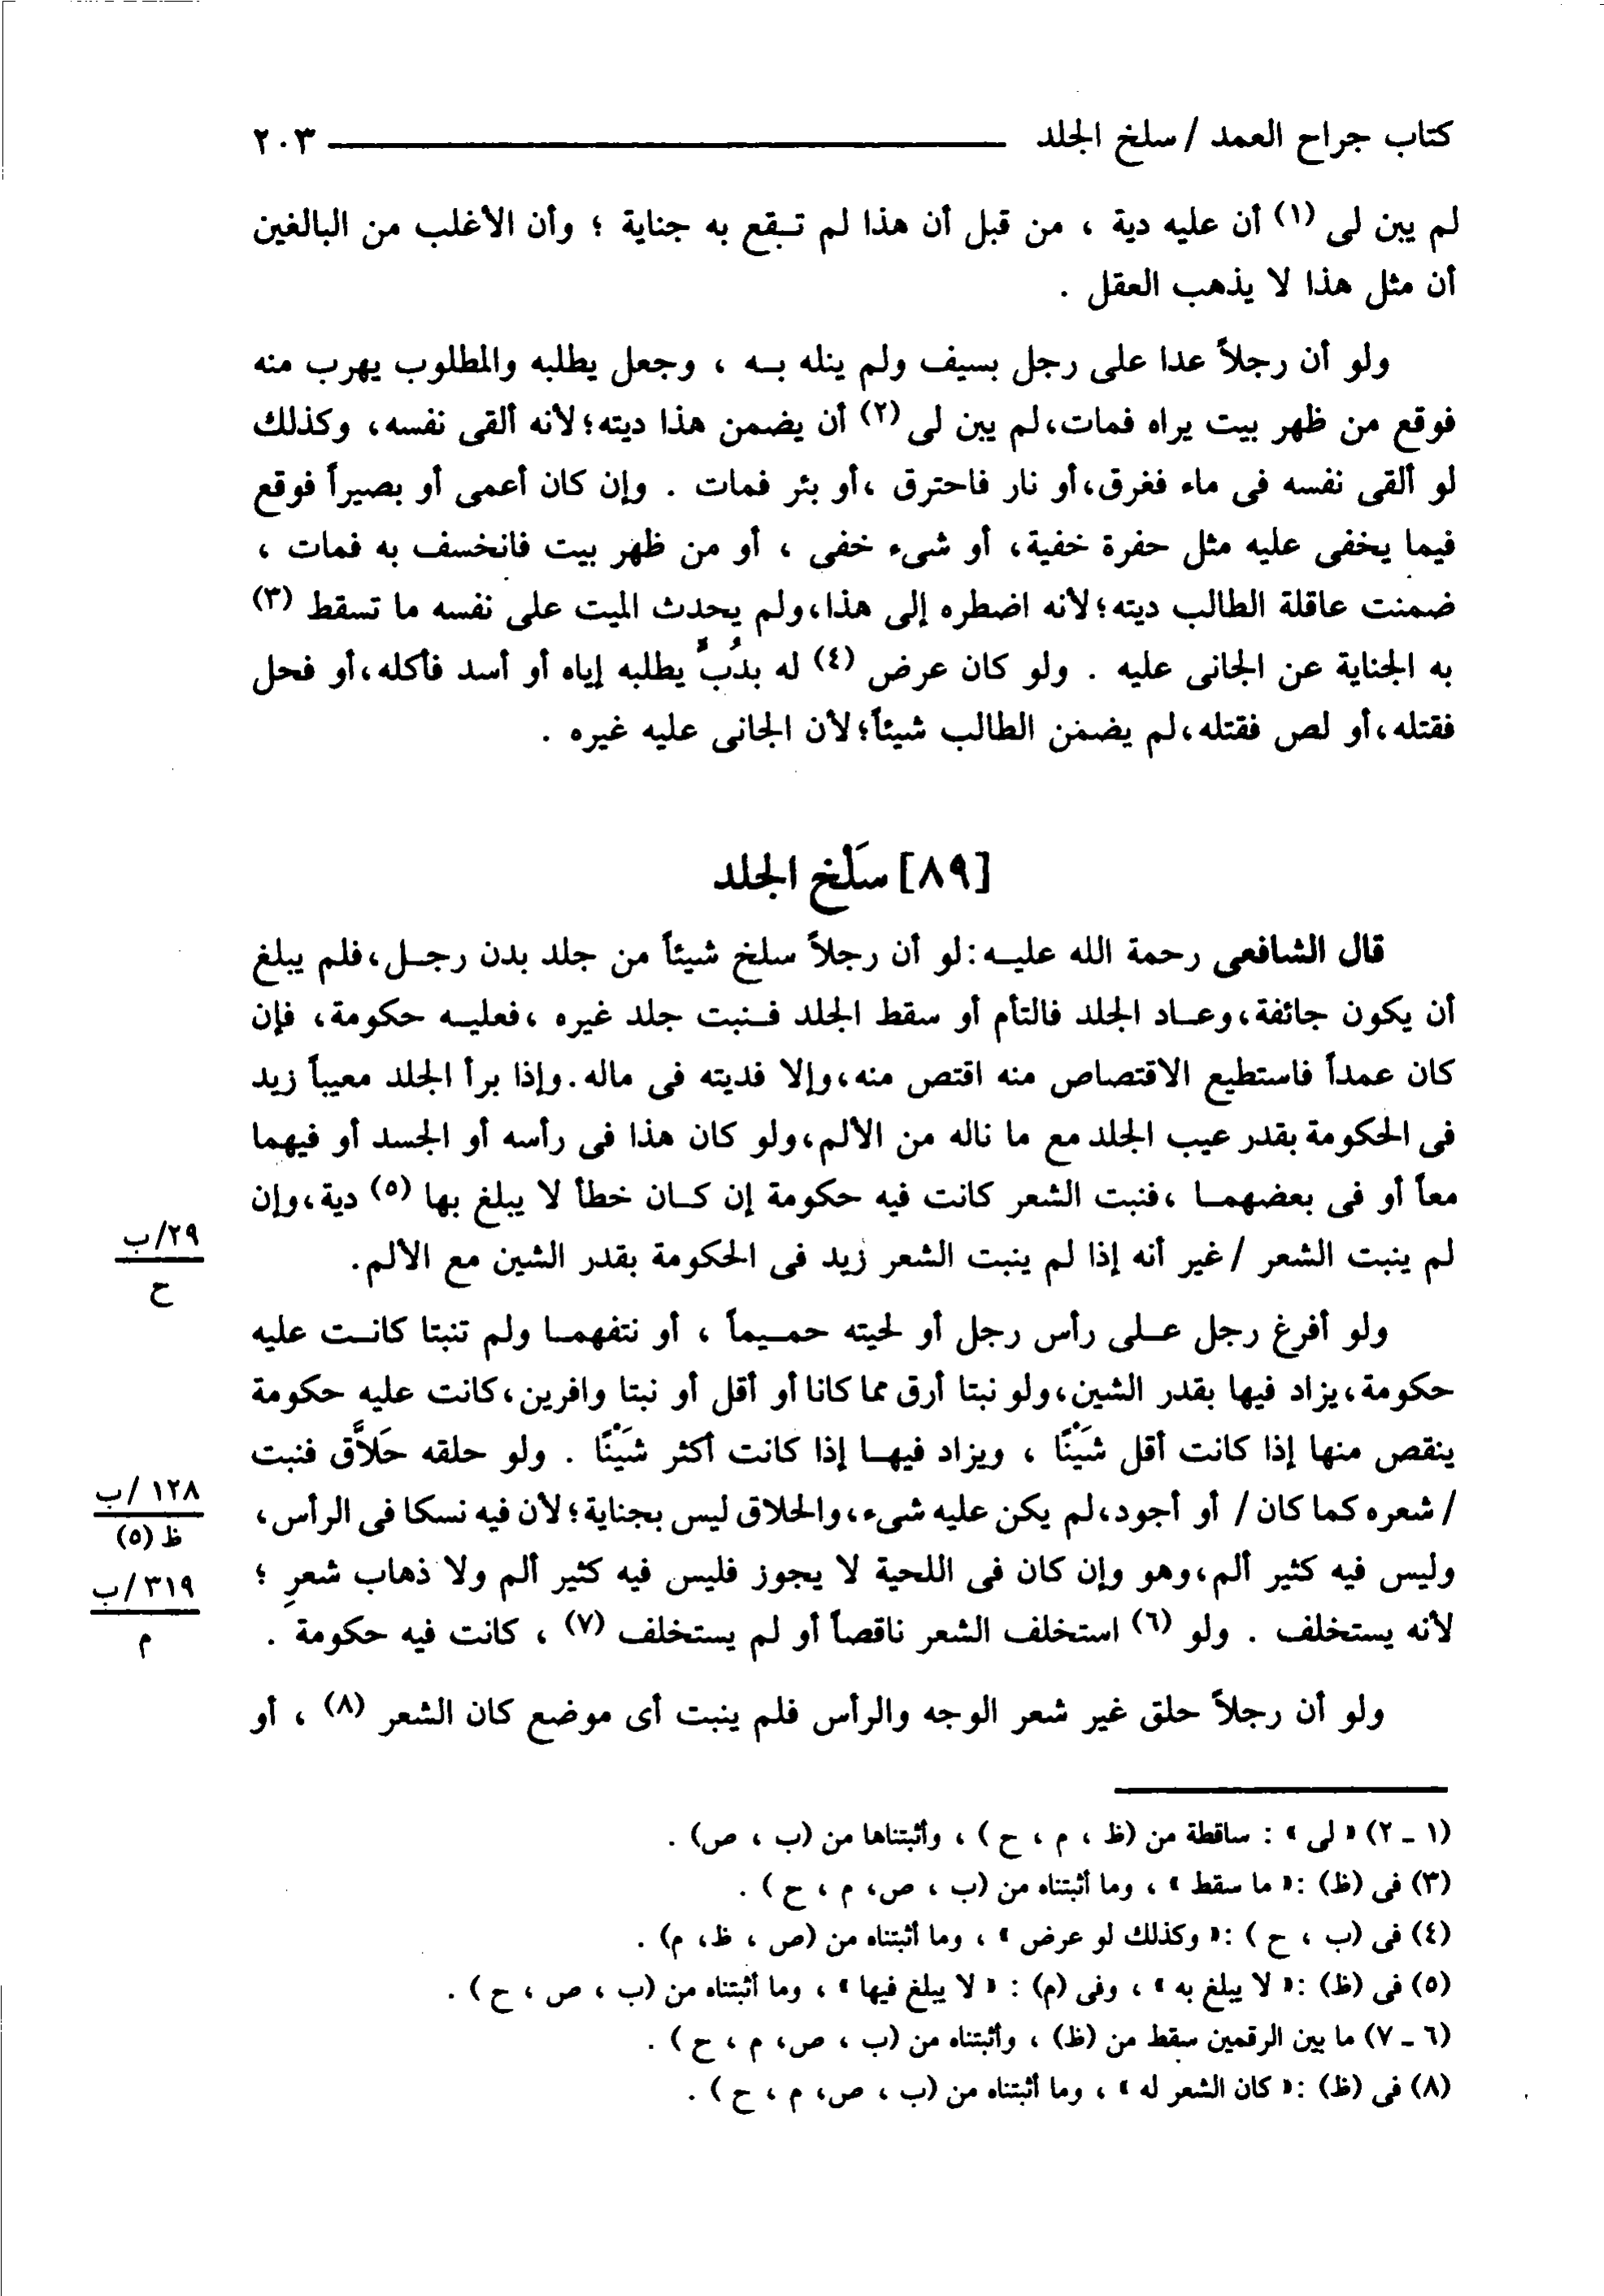 كتاب جراح العمد / سلخ الجلد ٢٠٣
لم يبن لى (١) أن عليه دية ، من قبل أن هذا لم تـقع به جناية ؛ وأن الأغلب من البالغين
أن مثل هذا لا يذهب العقل .
ولو أن رجلاً عدا على رجل بسيف ولم ينله بـه ، وجعل يطلبه والمطلوب يهرب منه
فوقع من ظهر بيت يراه فمات، لم يبن لى (٢) أن يضمن هذا ديته؛ لأنه ألقى نفسه، وكذلك
لو ألقى نفسه فى ماء فغرق، أو نار فاحترق ، أو بئر فمات . وإن كان أعمى أو بصيراً فوقع
فيما يخفى عليه مثل حفرة خفية، أو شىء خفى ، أو من ظهر بيت فانخسف به فمات ،
ضمنت عاقلة الطالب ديته؛ لأنه اضطره إلى هذا، ولم يحدث الميت على نفسه ما تسقط (٣)
به الجناية عن الجانى عليه . ولو كان عرض (٤) له بدُبٍّ يطلبه إياه أو أسد فأكله، أو فحل
فقتله، أو لص فقتله، لم يضمن الطالب شيئاً؛ لأن الجانى عليه غيره .
[٨٩] سَلْخ الجلد
قال الشافعى رحمة الله عليـه: لو أن رجلاً سلخ شيئاً من جلد بدن رجـل، فلم يبلغ
أن يكون جائفة، وعـاد الجلد فالتأم أو سقط الجلد فـنبت جلد غيره ، فعليـه حكومة، فإن
كان عمداً فاستطيع الاقتصاص منه اقتص منه، وإلا فديته فى ماله. وإذا برأ الجلد معيباً زيد
فى الحكومة بقدر عيب الجلد مع ما ناله من الألم، ولو كان هذا فى رأسه أو الجسد أو فيهما
معاً أو فى بعضهمـا ، فنبت الشعر كانت فيه حكومة إن كـان خطأ لا يبلغ بها (٥) دية، وإن
لم ينبت الشعر / غير أنه إذا لم ينبت الشعر زيد فى الحكومة بقدر الشين مع الألم.
٢٩/ب
ح
ولو أفرغ رجل عـلى رأس رجل أو لحيته حمـيماً ، أو نتفهمـا ولم تنبتا كانـت عليه
حكومة، يزاد فيها بقدر الشين، ولو نبتا أرق مما كانا أو أقل أو نبتا وافرين، كانت عليه حكومة
ينقص منها إذا كانت أقل شَيْنًا ، ويزاد فيهـا إذا كانت أكثر شَيْنًا . ولو حلقه حَلاَّق فنبت
/ شعره كما كان / أو أجود، لم يكن عليه شىء، والحلاق ليس بجناية؛ لأن فيه نسكا فى الرأس،
١٢٨ /ب
ظ (٥)
وليس فيه كثير ألم، وهو وإن كان فى اللحية لا يجوز فليس فيه كثير ألم ولا ذهاب شعرِ ؛
٣١٩/ب
م
لأنه يستخلف . ولو (٦) استخلف الشعر ناقصاً أو لم يستخلف (٧) ، كانت فيه حكومة .
ولو أن رجلاً حلق غير شعر الوجه والرأس فلم ينبت أى موضع كان الشعر (٨) ، أو
(١ ـ ٢) « لى » : ساقطة من (ظ ، م ، ح ) ، وأثبتناها من (ب ، ص) .
(٣) فى (ظ) : « ما سقط » ، وما أثبتناه من (ب ، ص، م ، ح ) .
(٤) فى (ب ، ح ) : « وكذلك لو عرض » ، وما أثبتناه من (ص ، ظ، م) .
(٥) فى (ظ) : « لا يبلغ به » ، وفى (م) : « لا يبلغ فيها » ، وما أثبتناه من (ب ، ص ، ح ) .
(٦ ـ ٧) ما بين الرقمين سقط من (ظ) ، وأثبتناه من (ب ، ص، م ، ح ) .
(٨) فى (ظ) : « كان الشعر له » ، وما أثبتناه من (ب ، ص، م ، ح ) .